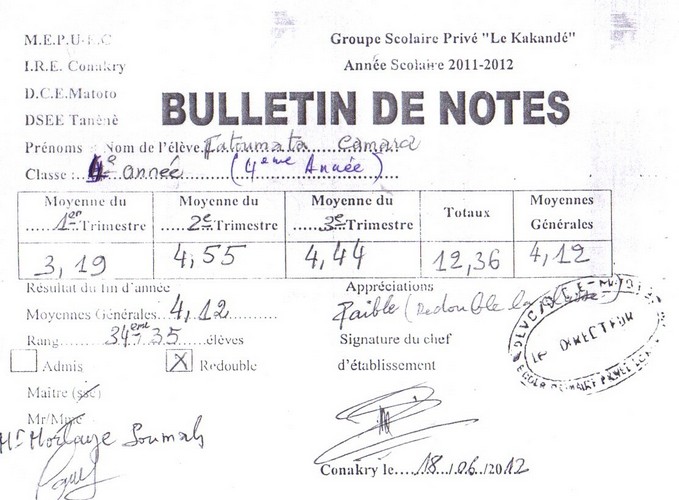 M.E.P.U-E.C
Groupe Scolaire Privé "Le Kakandé"
I.R.E. Conakry
Année Scolaire 2011-2012
D.C.E.Matoto
BULLETIN DE NOTES
DSEE Tanènè
Prénoms Nom de l'élève Fatoumata Camara
Classe : 4e année (4eme Année)
Moyenne du 1er Trimestre
Moyenne du 2e Trimestre
Moyenne du 3e Trimestre
Totaux
Moyennes Générales
3,19 4,55 4,44 12,36 4,12
Résultat du fin d'année
Appréciations
Moyennes Générales 4,12
Faible (Redouble la
Rang 34eme 35 élèves
Signature du chef
d'établissement
Admis X Redouble
LE DIRECTEUR
Maitre (sse)
Mr/Mme
Mr Morlaye Soumah
Conakry le 18/06/2012